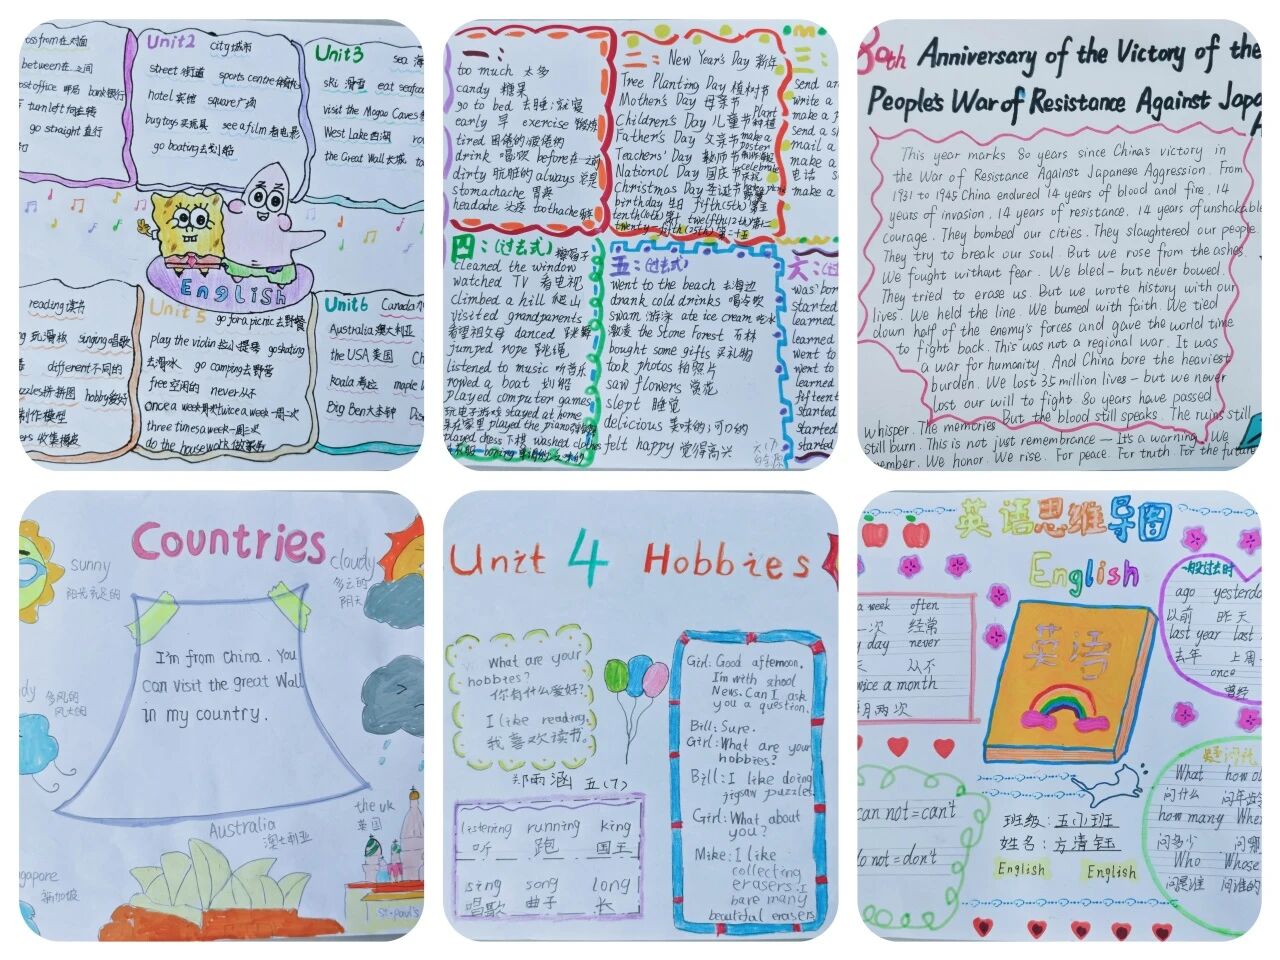 ossfrom在对面
between在...之间
ost office 邮局 bank银行
turn left向左转
go straight 直行
Unit2 city城市
street 街道 sports centre体育中心
hotel 宾馆 square广场
buy toys 买玩具 see a film 看电影
go boating去划船
Unit3
sea
ski 滑雪 eat seafoo
visit the Mogao Caves
West Lake西湖
the Great Wall长城
English
reading读书
玩滑板 singing唱歌
different不同的
zzles拼拼图 hobby爱好
制作模型
ers 收集
Unit 5
go for a picnic去野餐
play the violin拉小提琴 go skating
去滑冰 go camping去野营
free空闲的 never从不
once a week一周一次twice a week一周二次
three times a week一周三次
do the housework做家务
Unit6 Canada
Australia 澳大利亚
the USA美国 Ch
koala考拉 maple
Big Ben大本钟
一:
too much 太多
candy 糖果
go to bed 去睡;就寝
early 早 exercise 锻炼
tired 困倦的疲倦的
drink 喝;饮 before在...之前
dirty 肮脏的 always 总是
stomachache 胃疼
headache 头疼 toothache牙疼
二: New Year's Day 新年
Tree Planting Day 植树节
Mother's Day 母亲节
Children's Day 儿童节
Plant
种植
Father's Day 父亲节
make a
poster
Teachers' Day 教师节
National Day 国庆节
celebrate
Christmas Day 圣诞节
birthday 生日 fifth(5th) 第五
tenth(10th)第十 twelfth(12th)第十二
twenty-fifth(25th)第二十五
三:
send a
write a
make a
send a
mail a
make a
电话
make a
四:(过去式)
cleaned the window
watched TV 看电视
climbed a hill 爬山
visited grandparents
看望祖父母 danced 跳舞
jumped rope 跳绳
listened to music 听音乐
rowed a boat 划船
played computer games
玩电子游戏 stayed at home
待在家里 played the piano弹钢琴
played chess下棋 washed clothes
五:(过去式)
went to the beach 去海边
drank cold drinks 喝冷饮
swam 游泳 ate ice cream
the Stone Forest 石林
bought some gifts 买礼物
took photos 拍照片
saw flowers 赏花
slept 睡觉
delicious 美味的;可口的
felt happy 觉得高兴
六:
was born
started
learned
started
learned
went to
learned
fifteen
started
started
started
80th Anniversary of the Victory of the
People's War of Resistance Against Japa
This year marks 80 years since China's victory in
the War of Resistance Against Japanese Aggression. From
1931 to 1945 China endured 14 years of blood and fire. 14
years of invasion. 14 years of resistance. 14 years of unshakable
courage. They bombed our cities. They slaughtered our people.
They try to break our soul. But we rose from the ashes.
We fought without fear. We bled - but never bowed.
They tried to erase us. But we wrote history with our
lives. We held the line. We burned with faith. We tied
down half of the enemy's forces and gave the world time
to fight back. This was not a regional war. It was
a war for humanity. And China bore the heaviest
burden. We lost 35 million lives - but we never
lost our will to fight. 80 years have passed.
But the blood still speaks. The ruins still
whisper. The memories
still burn. This is not just remembrance — It's a warning. We
member. We honor. We rise. For peace. For truth. For the future
Countries
sunny
阳光充足的
cloudy
多云的
阴天
dy
多风的
风大的
I'm from China. You
can visit the great Wall
in my country.
Australia
澳大利亚
the uk
英国
ngapore
新加坡
St·paul's
Unit 4 Hobbies
What are your
hobbies?
你有什么爱好?
I like reading.
我喜欢读书。
郑雨涵 五(7)
listening running king
听 跑 国王
sing song long
唱歌 曲子 长
Girl: Good afternoon.
I'm with school
News. Can I ask
you a question.
Bill: Sure.
Girl: What are your
hobbies?
Bill: I like doing
jigsaw puzzles
Girl: What about
you?
Mike: I like
collecting
erasers. I
bare many
beautiful erasers
英语思维导图
English
英语
a week often
一次 经常
y day never
天 从不
twice a month
月两次
一般过去时
ago yesterda
以前 昨天
last year last
去年 上周
once
曾经
can not=can't
do not=don't
班级:五(1)班
姓名:方清钰
English English
疑问代
What how ol
问什么 问年龄
how many Wher
问多少 问哪
Who Whose
问是谁 问谁的